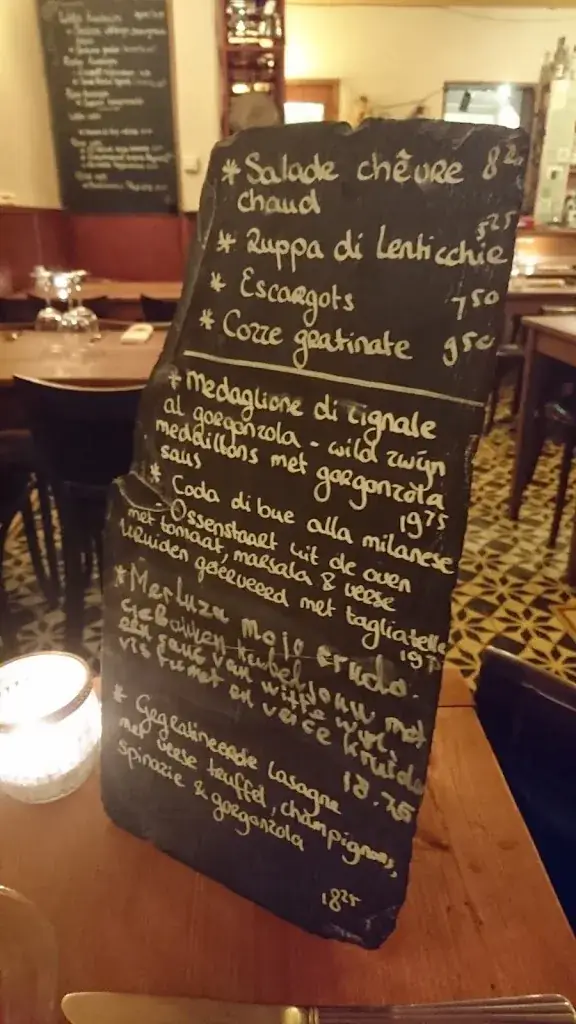 * Salade chêvre
chaud
* Zuppa di lenticchie 5 25
* Escargots 7 50
* Cozze gratinate 9 50
* Medaglione di cignale
al gorgonzola - wild zwijn
medaillons met gorgonzola
saus 19 75
* Coda di bue alla milanese
Ossenstaart uit de oven
met tomaat, marsala & verse
kruiden geserveerd met tagliatelle
* Merluza mojo crudo.
Gebakken kabeljouw met
een saus van witte wijn,
visfumet en verse kruiden
18.75
* Gegratineerde lasagne
met verse truffel, champignons,
spinazie & gorgonzola
18 25